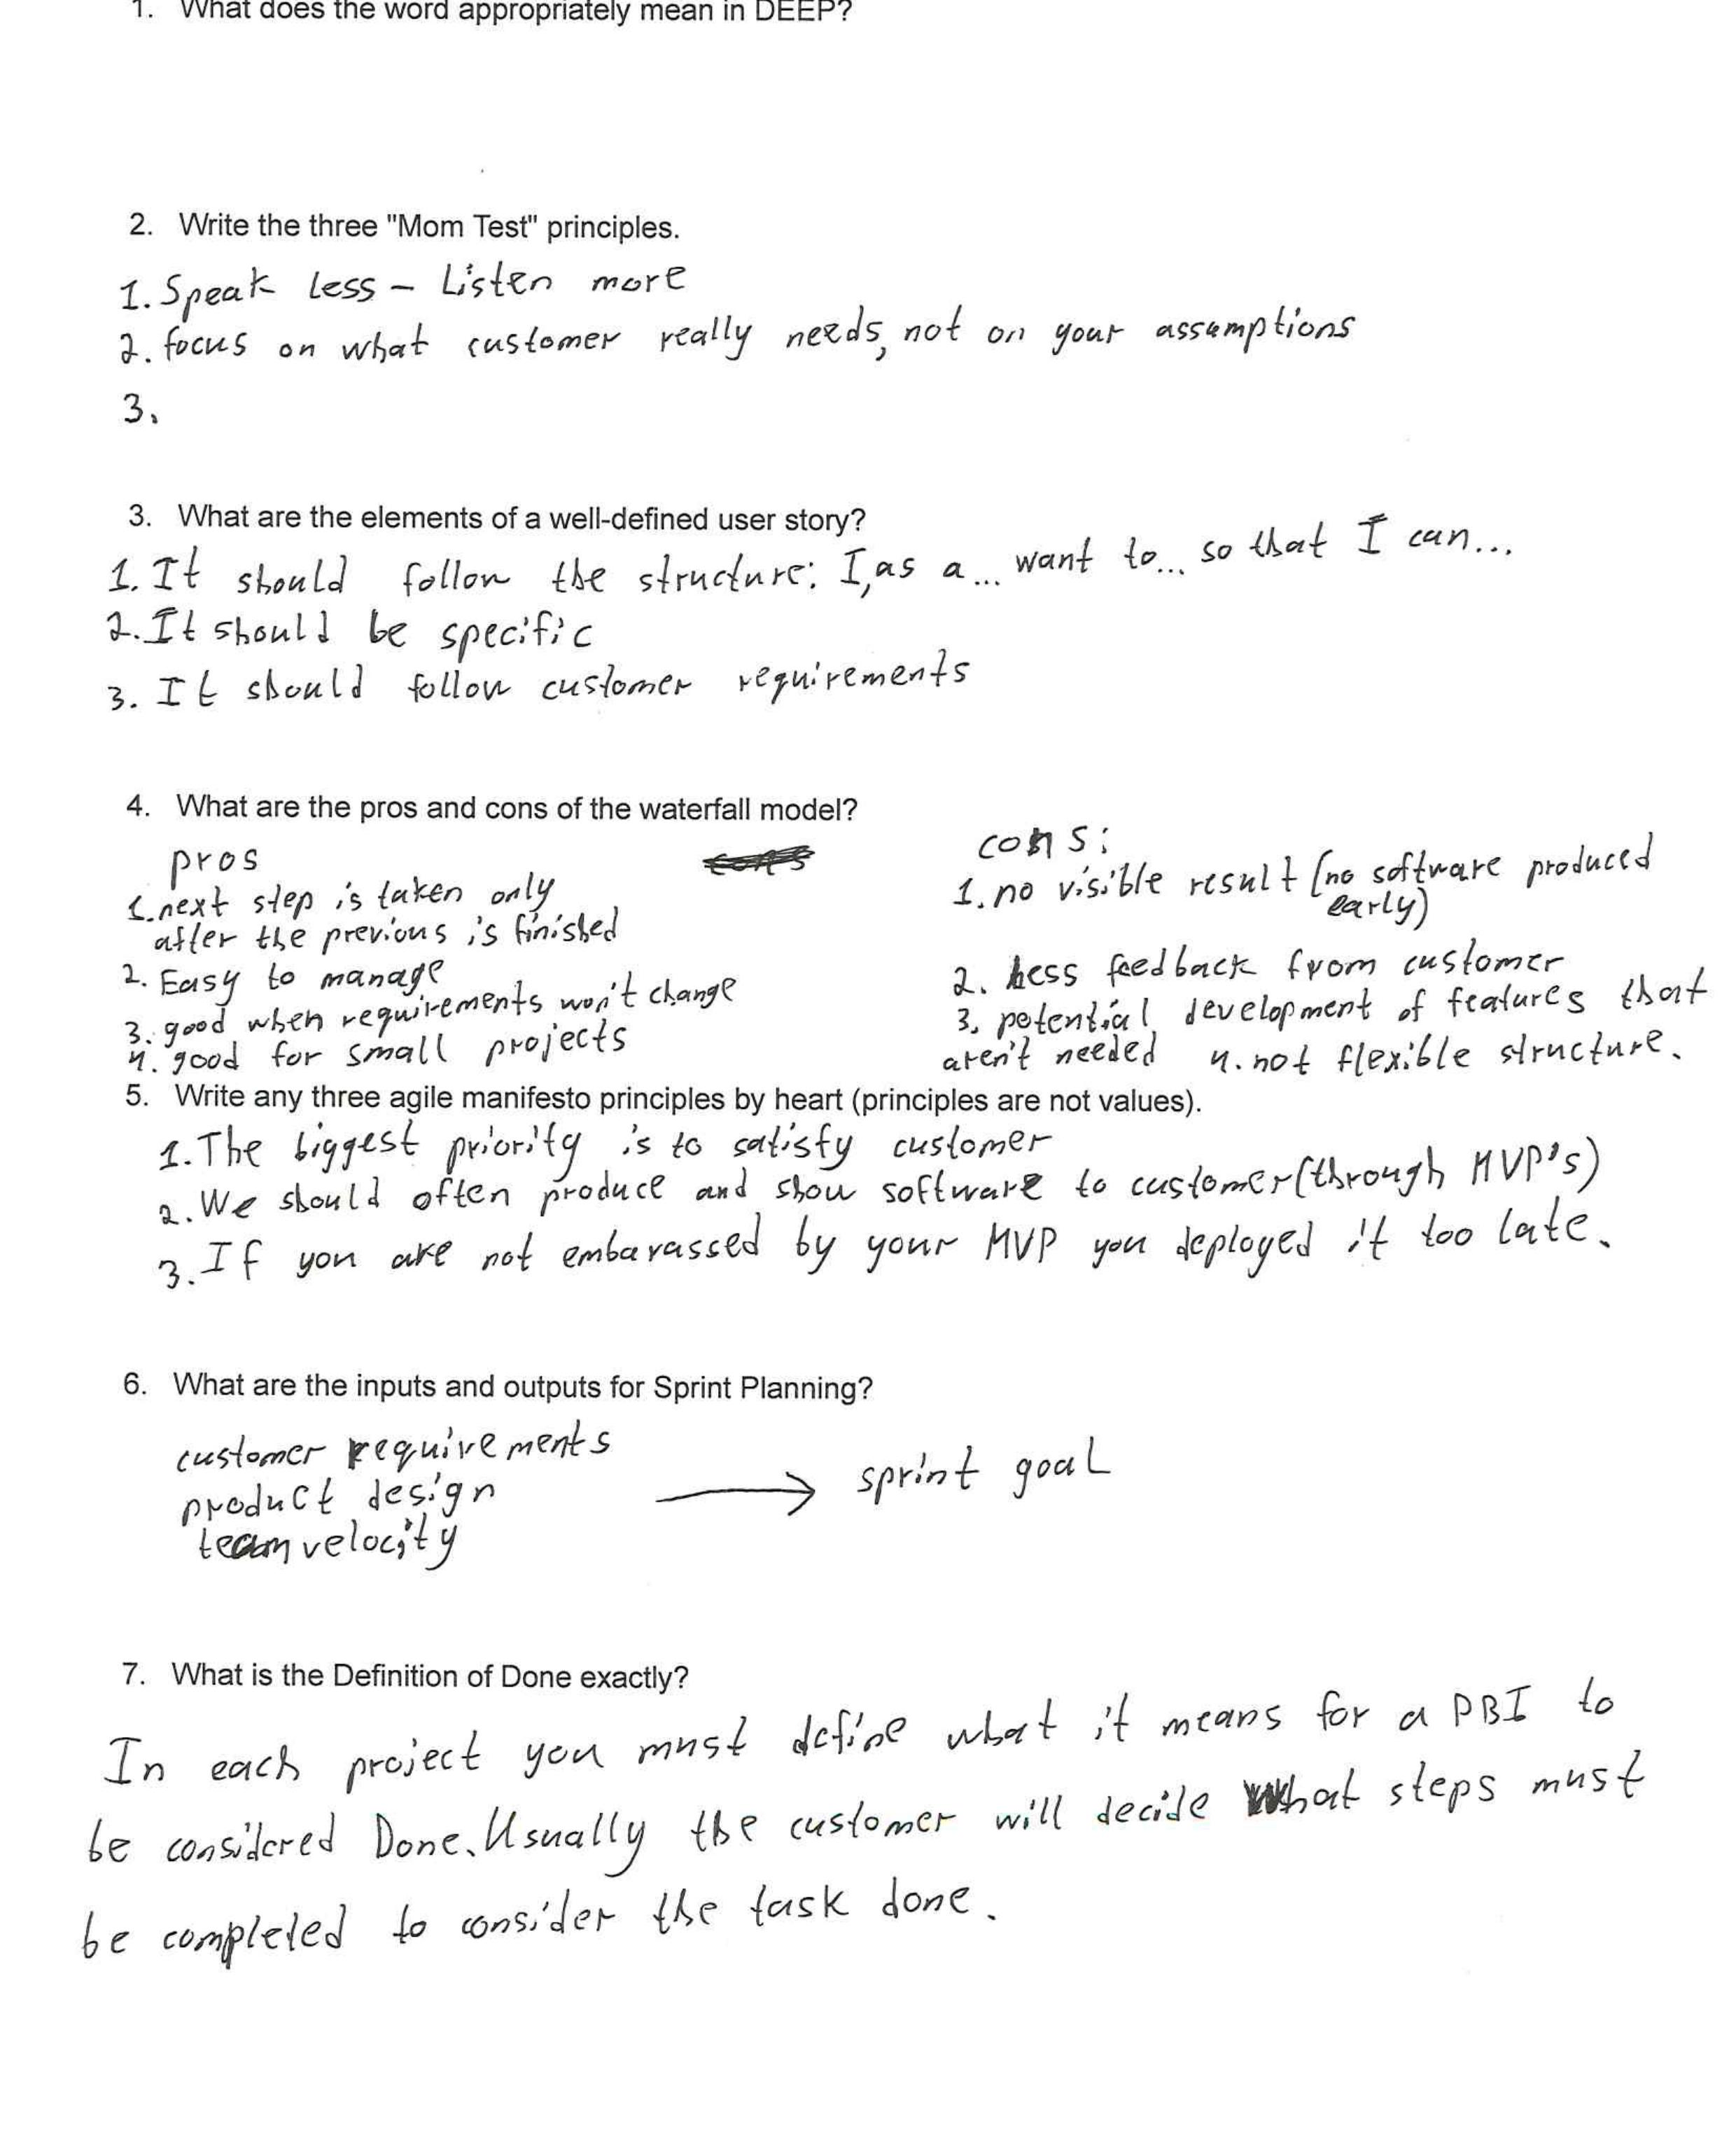 1. What does the word appropriately mean in DEEP?
2. Write the three "Mom Test" principles.
1. Speak less – Listen more
2. focus on what customer really needs, not on your assumptions
3.
3. What are the elements of a well-defined user story?
1. It should follow the structure: I, as a... want to... so that I can...
2. It should be specific
3. It should follow customer requirements
4. What are the pros and cons of the waterfall model?
pros
1. next step is taken only
after the previous is finished
2. Easy to manage
3. good when requirements won't change
4. good for small projects
cons:
1. no visible result (no software produced
early)
2. Less feedback from customer
3. potential development of features that
aren't needed 4. not flexible structure.
5. Write any three agile manifesto principles by heart (principles are not values).
1. The biggest priority is to satisfy customer
2. We should often produce and show software to customer (through MVP's)
3. If you are not embarassed by your MVP you deployed it too late.
6. What are the inputs and outputs for Sprint Planning?
customer requirements
product design
team velocity
→ sprint goal
7. What is the Definition of Done exactly?
In each project you must define what it means for a PBI to
be considered Done. Usually the customer will decide what steps must
be completed to consider the task done.